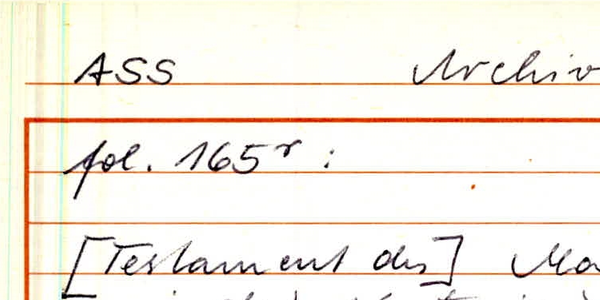 ASS Archiv
fol. 165r :
[Testament des]